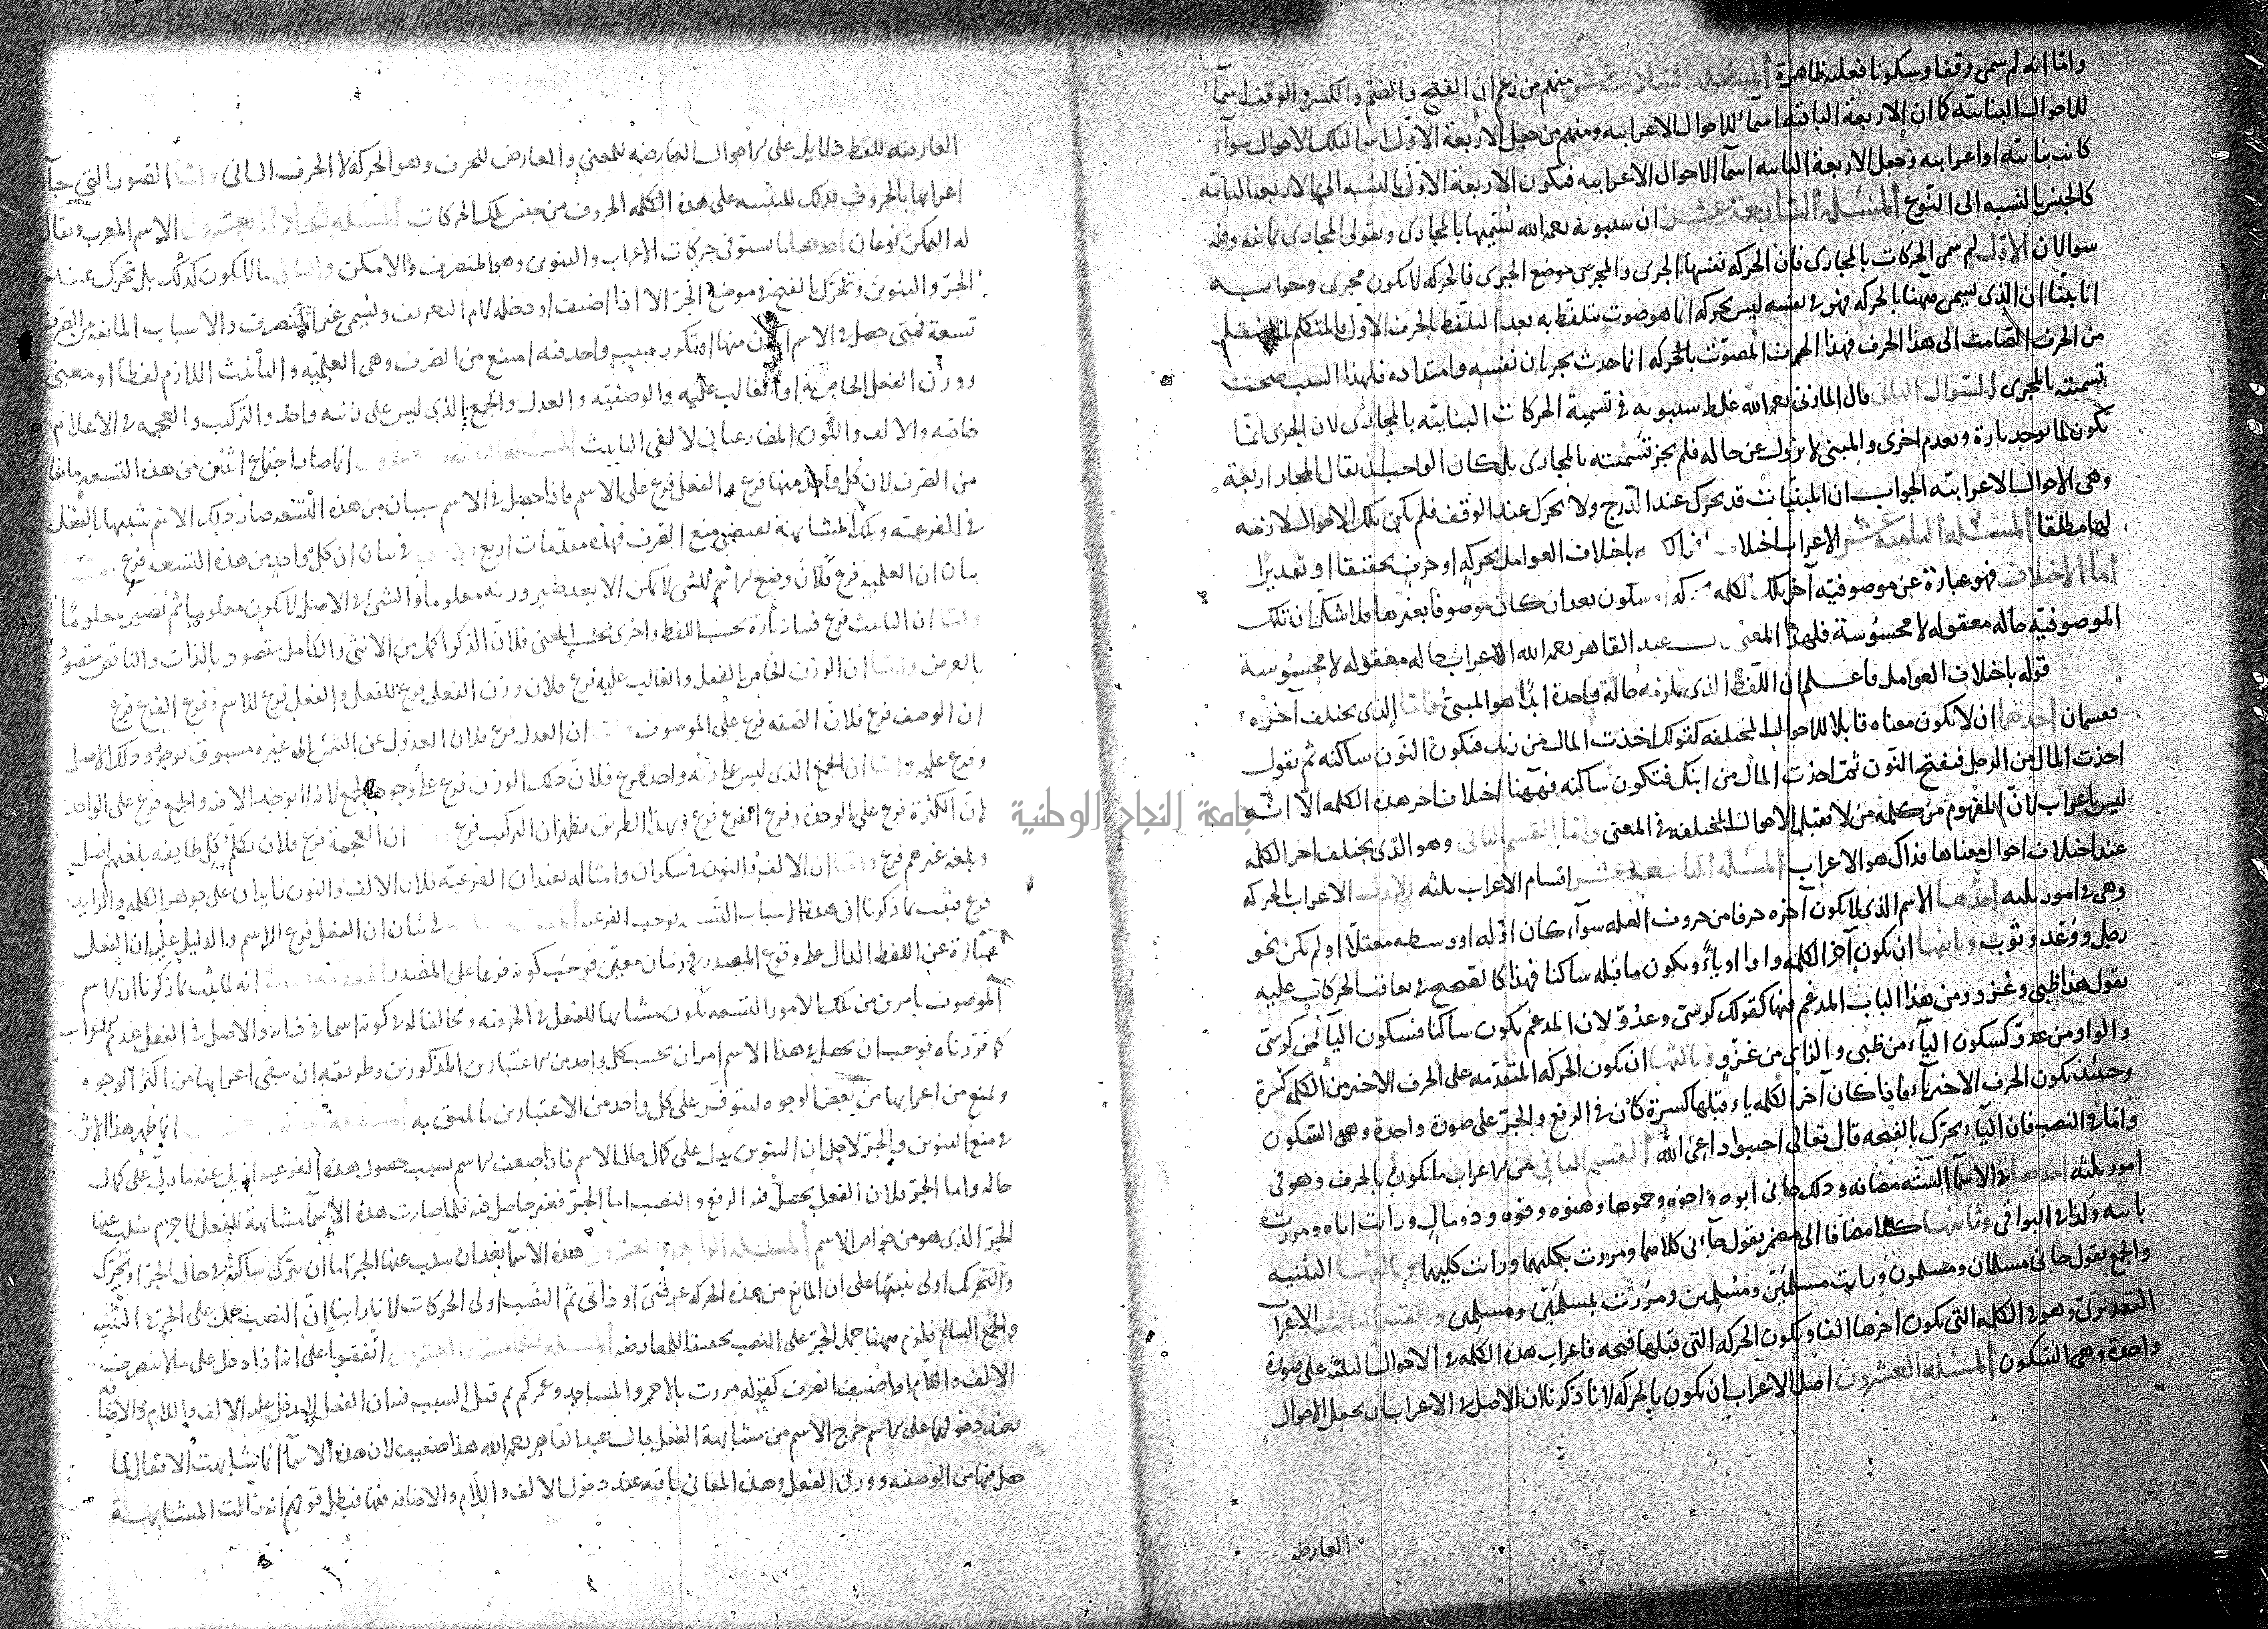 واما انه لم سمى وقفا وسكونا فعلته ظاهرة المسئلة السادسة عشر منهم من زعم ان الفتح والضم والكسر والوقف اسماء
للاحوال البنائية كما ان الاربعة الباقية اسماء للاحوال الاعرابيه ومنهم من جعل الاربعة الاول اسما لتلك الاحوال سوآء
كانت بنائية او اعرابيه وجعل الاربعة الثانيه اسما للاحوال الاعرابيه فتكون الاربعة الاول بالنسبه الى الاربعه الثانيه
كالجنس بالنسبه الى النوع المسئلة السابعة عشر ان سيبويه رحمه الله يسميها بالمجارى ويقول المجارى ثمانيه وفيه
سوالان الاول لم سمى الحركات بالمجارى فان الحركه نفسها الجرى والمجرى موضع الجرى فالحركه لا تكون مجرى وجوابه
انا بينا ان الذى يسمى ههنا بالحركه فهو فى نفسه ليس بحركه انما هو صوت يتلفظ به بعد التلفظ بالحرف الاول فالمتكلم لما انتقل
من الحرف الصامت الى هذا الحرف فهذا الحرف المصوت بالحركه انما حدث بجريان نفسه وامتداده فلهذا السبب صحت
تسميته بالمجرى السؤال الثانى قال المازنى رحمه الله غلط سيبويه فى تسمية الحركات البنائية بالمجارى لان الجرى انما
يكون لما يوجد تارة ويعدم اخرى والمبنى لا يزول عن حاله فلم يجز تسميته بالمجارى بل كان الواجب ان يقال المجارى اربعة
وهى الاحوال الاعرابية الجواب ان المبنيات قد تحرك عند الدرج ولا تحرك عند الوقف فلم تكن تلك الاحوال لازمه
لها مطلقا المسئلة الثامنة عشر الاعراب اختلاف باختلاف العوامل بحركه او حرف تحقيقا او تقديرا
اما الاختلاف فهو عبارة عن موصوفية آخر تلك الكلمه سكون بعد ان كان موصوفا بغيرها ولا شك ان تلك
الموصوفية حاله معقوله لا محسوسة فلهذا المعنى عبد القاهر رحمه الله الاعراب حاله معقوله لا محسوسة
قوله باختلاف العوامل فاعلم ان اللفظ الذى يلزمه حالة واحدة ابدا هو المبنى واما الذى يختلف آخره
فقسمان احدهما ان لا يكون معناه قابلا للاحوال المختلفه كقولك اخذت المال من زيد فتكون النون ساكنه ثم تقول
اخذت المال من الرجل فتفتح النون ثم تقول اخذت المال من ابنك فتكون ساكنه فههنا اختلاف آخر هذه الكلمه الا انه
ليس باعراب لان المفهوم من كلمه من لا تقبل الاحوال المختلفه فى المعنى واما القسم الثانى وهو الذى يختلف اخر الكلمه
عند اختلاف احوال معناها فذاك هو الاعراب المسئلة التاسعة عشر اقسام الاعراب ثلثه الاول الاعراب بالحركه
وهى فى امور ثلثه احدها الاسم الذى لا يكون آخره حرفا من حروف العله سوآء كان اوله او وسطه معتلا او لم يكن نحو
رجل ووعد وثوب وثانيها ان يكون آخر الكلمه واوا او ياءً ويكون ما قبله ساكنا فهذا كالصحيح فى تعاقب الحركات عليه
تقول هذا ظبى وغزو ومن هذا الباب المدغم فيها كقولك كرسى وعدو لان المدغم يكون ساكنا فسكون اليآء من كرسى
والواو من عدو كسكون اليآء من ظبى والزاى من غزو وثالثها ان تكون الحركه المتقدمه على الحرف الاخير من الكلمه كسرة
وحينئذ يكون الحرف الاخير ياء واذا كان آخر الكلمه ياء قبلها كسرة كان فى الرفع والجر على صورة واحدة وهى السكون
واما فى النصب فان اليآء تحرك بالفتحه قال تعالى اجيبوا داعى الله القسم الثانى من الاعراب ما يكون بالحرف وهو فى
امور ثلثه احدها فى الاسماء الستة مضافه وذلك جانى ابوه واخوه وحموها وهنوه وفوه وذو مال ورايت اباه ومررت
بابيه وكذا فى البواقى وثانيها كلا مضافا الى مضمر تقول جآءنى كلاهما ومررت بكليهما ورايت كليهما وثالثها التثنيه
والجمع تقول جانى مسلمان ومسلمون ورايت مسلمَين ومسلمين ومررت بمسلمين ومسلمين والقسم الثالث الاعراب
التقديرى وهو فى الكلمه التى يكون اخرها الفا وتكون الحركه التى قبلها فتحه فاعراب هذه الكلمه فى الاحوال الثلثه على صورة
واحدة وهى السكون المسئلة العشرون اصل الاعراب ان يكون بالحركه لانا ذكرنا ان الاصل فى الاعراب ان يجعل الاحوال
العارضه
العارضه للفظ دلايل على الاحوال العارضه للمعنى والعارض للحرف وهو الحركه لا الحرف الثانى واما الصور التى جآء
اعرابها بالحروف فذلك للتنبيه على هذه الكلمه الحروف من جنس تلك الحركات المسئلة الحادية والعشرون الاسم المعرب ويقال
له المتمكن نوعان احدهما ما يستوفى حركات الاعراب والتنوين وهو المنصرف والامكن والثانى مالا يكون كذلك بل تحرك عنه
الجر والتنوين وتحرك بالفتح فى موضع الجر الا اذا اضيف او دخله لام التعريف ويسمى غير المنصرف والاسباب المانعه من الصرف
تسعة فمتى حصل فى الاسم اثنان منها او تكرر سبب واحد فيه امتنع من الصرف وهى العلمية والتأنيث اللازم لفظا او معنى
ووزن الفعل الخاص به او الغالب عليه والوصفيه والعدل والجمع الذى ليس على زنته واحد والتركيب والعجمه فى الاعلام
خاصه والالف والنون المضارعتان لالفى التانيث انما صار اجتماع اثنين من هذه التسعه مانعا
من الصرف لان كل واحد منها فرع والفعل فرع على الاسم فاذا حصل فى الاسم سببان من هذه التسعه صار ذلك الاسم شبيها بالفعل
فى الفرعيه وتلك المشابهة تقتضى منع الصرف فهذه مقدمات اربع فى بيان ان كل واحد من هذه التسعه فرع
بيان ان العلميه فرع فلان وضع الاسم للشئ لا يمكن الا بعد صيرورته معلوما والشئ فى الاصل لا يكون معلوما ثم يصير معلوما
واما ان التانيث فرع فبيانه تارة بحسب اللفظ واخرى بحسب المعنى فلان الذكر اكمل من الانثى والكامل مقصود بالذات والناقص مقصود
بالعرض واما ان الوزن الخاص بالفعل والغالب عليه فرع فلان وزن الفعل فرع للفعل والفعل فرع للاسم وفرع الفرع فرع
ان الوصف فرع فلان الصفه فرع على الموصوف ان العدل فرع فلان العدول عن الشئ الى غيره مسبوق بوجود ذلك الاصل
وفرع عليه واما ان الجمع الذى ليس على زنته واحد فرع فلان ذلك الوزن فرع على وجود الجمع لانه لا يوجد الا فيه والجمع فرع على الواحد
لان الكثرة فرع على الوحدة وفرع الفرع فرع وبهذا الطريق يظهر ان التركيب فرع ان العجمة فرع فلان تكلم كل طايفه بلغتهم اصل
وبلغه غيرهم فرع واما ان الالف والنون فى سكران وامثاله يفيدان الفرعية فلان الالف والنون زايدان على جوهر الكلمه والزايد
فرع فثبت بما ذكرنا ان هذه الاسباب يوجب الفرعيه فى بيان ان الفعل فرع الاسم والدليل عليه ان الفعل
عبارة عن اللفظ الدال على وقوع المصدر فى زمان معين فوجب كونه فرعا على المصدر انه لما ثبت بما ذكرنا ان الاسم
الموصوف بامرين من تلك الامور التسعه يكون مشابها للفعل فى الفرعيه ومخالفا له فى كونه اسما فى ذاته والاصل فى الفعل عدم الاعراب
كما قررناه فوجب ان يحصل فى هذا الاسم امران بحسب كل واحد من الاعتبارين المذكورين وطريقه ان يبقى اعرابها من اكثر الوجوه
ولمنع من اعرابها من بعض الوجوه ليتوفر على كل واحد من الاعتبارين ما يليق به انما ظهر هذا الاثر
فى منع التنوين والجر لاجل ان التنوين يدل على كمال حال الاسم فاذا ضعف الاسم بسبب حصول هذه الفرعيه ازيل عنه ما دل على كمال
حاله واما الجر فلان الفعل يحصل فيه الرفع والنصب اما الجر فغير حاصل فيه فلما صارت هذه الاسمآ مشابهة للفعل لا جرم سلب عنها
الجر الذى هو من خواص الاسم المسئلة الرابعة والعشرون هذه الاسمآ بعد ان سلب عنها الجر اما ان تترك ساكنة فى حال الجر او تحرك
والتحرك اولى تنبيها على ان المانع من هذه الحركه عرضى او ذاتى ثم النصب اولى الحركات لانا راينا ان النصب حمل على الجر فى التثنيه
والجمع السالم فلزم ههنا حمل الجر على النصب تحقيقا للمعارضه المسئلة الخامسة والعشرون اتفقوا على انه اذا دخل على مالا ينصرف
الالف واللام او اضيف انصرف كقوله مررت بالاحمر والمساجد وعمركم ثم قيل السبب فيه ان الفعل لا يدخل عليه الالف واللام والاضافه
فعند دخولها على الاسم خرج الاسم من مشابهة الفعل قال عبد القاهر رحمه الله هذا ضعيف لان هذه الاسمآ انما شابهت الافعال لما
حصل فيها من الوصفيه ووزن الفعل وهذه المعانى باقيه عند دخول الالف واللام والاضافه فيها فبطل قولهم انه زالت المشابهة
جامعة النجاح الوطنية